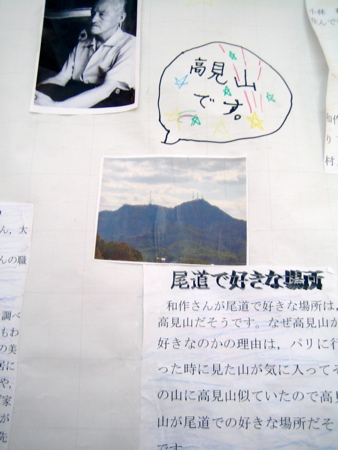 小林
なんで
高見山
です。
ん，大
んの職
調べ
もわ
の美
居に
や，
が
先
村
尾道で好きな場所
和作さんが尾道で好きな場所は，
高見山だそうです。なぜ高見山が
好きなのかの理由は，パリに行
った時に見た山が気に入ってそ
の山に高見山似ていたので高見
山が尾道での好きな場所だそ
です